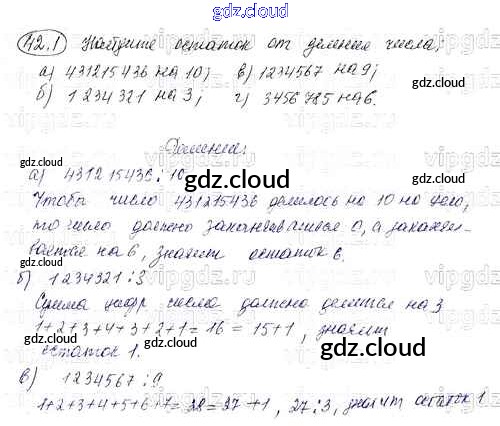 gdz.cloud
42.1 Найдите остаток от деления числа:
а) 431215436 на 10; в) 1234567 на 9;
б) 1234321 на 3; г) 3456785 на 6.
gdz.cloud
gdz.cloud
gdz.cloud
Решение:
gdz.cloud
а) 431215436 : 10
gdz.cloud
Чтобы число 431215436 делилось на 10 на цело,
то число должно заканчиваться 0, а заканчи-
вается на 6, значит остаток 6.
gdz.cloud
б) 1234321 : 3
gdz.cloud
Сумма цифр числа должна делится на 3
1+2+3+4+3+2+1=16=15+1, значит
остаток 1.
gdz.cloud
в) 1234567 : 9
gdz.cloud
1+2+3+4+5+6+7=28=27+1, 27:3, значит остаток 1